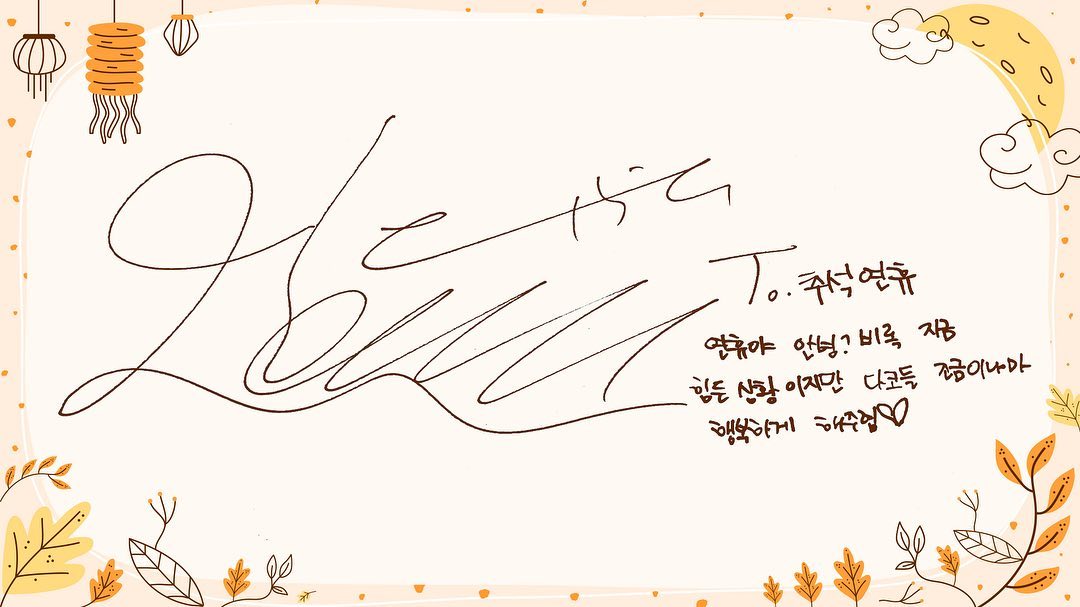 To. 추석연휴
연휴야 안녕? 비록 지금
힘든 상황이지만 다코들 조금이나마
행복하게 해주렴♡